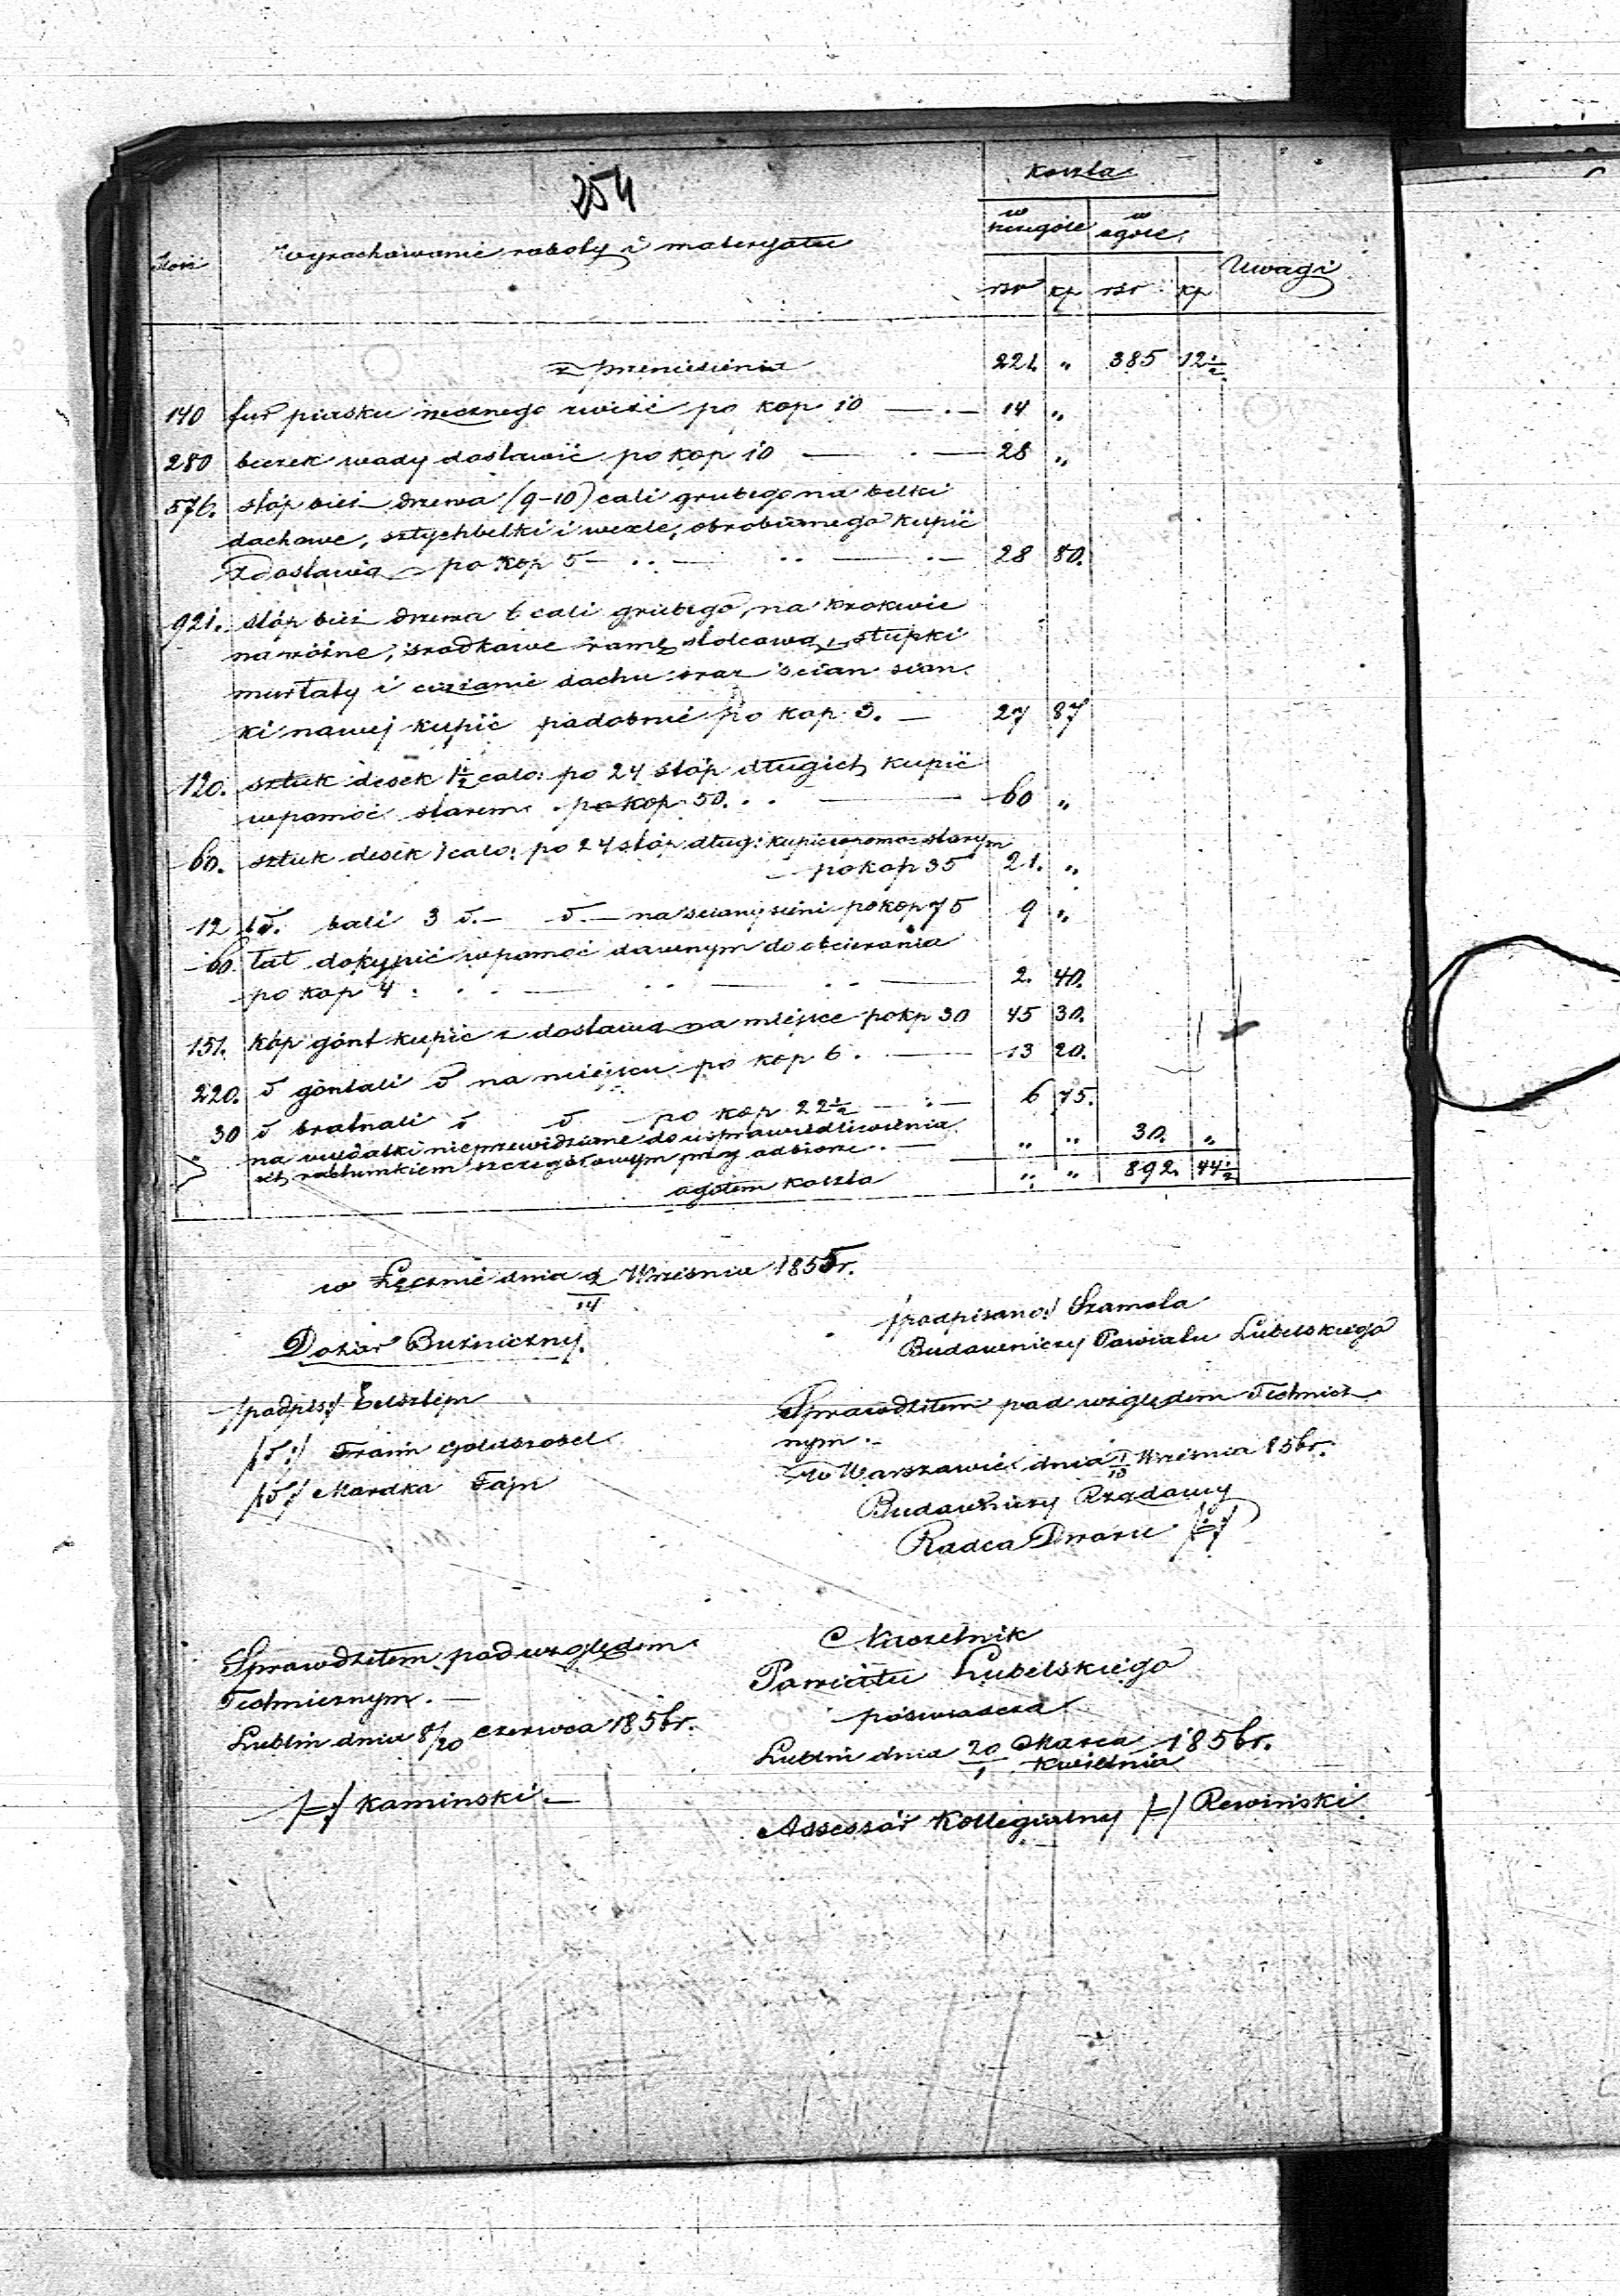 254
Koszta
w szczególe w ogóle
Ilość Wyrachowanie roboty i materyału rsr kp rsr kp Uwagi
z przeniesienia 221 " 385 12½
140 fur piasku rzecznego zwieść po kop 10 — . — 14 "
280 beczek wody dostawić po kop 10 — . — 28 "
576. stóp bież drzewa (9-10) cali grubego na belki
dachowe, sztychbelki i wexle, obrobionego kupić
z dostawą po kop 5 — .. — .. — . — 28 80.
921. stóp bież drzewa 6 cali grubego, na krokwie
narożne, środkowe ramę stolcową, słupki
murłaty i ściany
ki nowej kupić podobnie po kop 3. — 27 87
120. sztuk desek 1½ calo: po 24 stóp długich kupić
w pomoc starem . po kop 50. . . — 60 "
60. sztuk desek 1 calo: po 24 stóp dług: kupić w pomoc starym
— po kop 35 21. "
12 d. bali 3 d. — d. — na ściany sieni po kop 75 9 "
60. łat dokupić w pomoc dawnym do obcierania
po kop 4 : . . — . . — . . — 2. 40.
151. kóp gont kupić z dostawą na miejsce po kp 30 45 30.
220. d gontali d na miejscu po kop 6. — 13 20.
30 d bratnali d d po kop 22½ — : — 6 75.
" na wydatki nieprzewidziane do usprawiedliwienia
ich rachunkiem szczegółowym przy odbiorze . — " " 30. "
ogółem koszta " " 892. 44½
w Łęcznie dnia 2/14 Września 1855r.
/podpisano:/ Szamota
Dozór Bużniczny. Budowniczy Powiatu Lubelskiego
/podpis:/ Edelsztejn
Sprawdziłem pod względem Technicz
/d:/ Froim Goldsobel nym. —
w Warszawie dnia 1/13 Września 856r.
/d:/ Mordka Fajn
Budowniczy Rządowy
Radca Dworu /=/
Sprawdziłem pod względem
Technicznym. —
Lublin dnia 8/20 Czerwca 1856r.
/=/ Kaminski —
Naczelnik
Powiatu Lubelskiego
poświadcza
Lublin dnia 20 Marca / 1 Kwietnia 1856r.
Assessór Kollegialny /=/ Rewiński